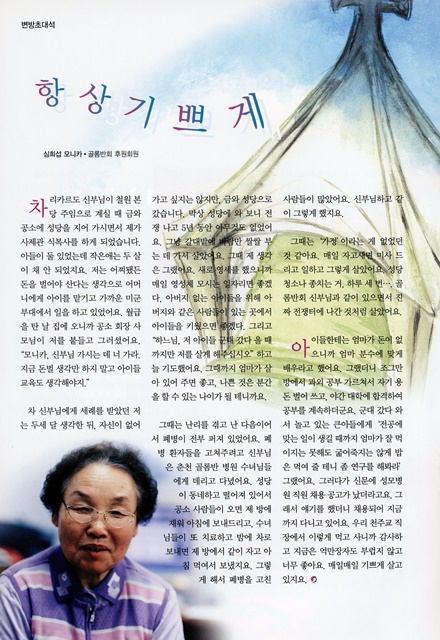 변방초대석
항상기쁘게
심희섭 모니카 • 골롬반회 후원회원
차리카르도 신부님이 철원 본
당 주임으로 계실 때 금와
공소에 성당을 지어 가시면서 제가
사제관 식복사를 하게 되었습니다.
아들이 둘 있었는데 작은애는 두 살
이 채 안 되었지요. 저는 어찌됐든
돈을 벌어야 산다는 생각으로 어머
니에게 아이를 맡기고 가까운 미군
부대에서 일을 하고 있었어요. 월급
을 탄 날 집에 오니까 공소 회장 사
모님이 저를 붙들고 그러셨어요.
"모니카, 신부님 가시는 데 너 가라.
지금 돈벌 생각만 하지 말고 아이들
교육도 생각해야지."
차 신부님에게 세례를 받았던 저
는 두세 달 생각한 뒤, 자신이 없어
가고 싶지는 않지만, 금와 성당으로
갔습니다. 막상 성당에 와 보니 전
쟁 나고 5년 동안 아무것도 없었어
요. 그냥 갈대밭에 바람만 쌀쌀 부
는 데 가서 살았어요. 그때 제 생각
은 그랬어요. 새로 영세를 했으니까
매일 영성체 모시는 일자리면 좋겠
다, 아버지 없는 아이들을 위해 아
버지와 같은 사람들이 있는 곳에서
아이들을 키웠으면 좋겠다, 그리고
"하느님, 저 아이들 군대 갔다 올 때
까지만 저를 살게 해주십시오" 하고
늘 기도했어요. 그때까지 엄마가 살
아 있어 주면 좋고, 나쁜 것은 분간
을 할 수 있는 나이가 될 테니까요.
그때는 난리를 겪고 난 다음이어
서 폐병이 전부 퍼져 있었어요. 폐
병 환자들을 고쳐주려고 신부님
은 춘천 골롬반 병원 수녀님들
에게 데리고 다녔어요. 성당
이 동네하고 떨어져 있어서
공소 사람들이 오면 제 방에
재워 아침에 보내드리고, 수녀
님들이 또 치료하고 밤에 차로
보내면 제 방에서 같이 자고 아
침 먹여서 보냈지요. 그렇
게 해서 폐병을 고친
사람들이 많았어요. 신부님하고 같
이 그렇게 했지요.
그때는 '가정'이라는 게 없었던
것 같아요. 매일 자고새면 미사 드
리고 일하고 그렇게 살았어요. 성당
청소나 종치는 거, 하루 세 번…. 골
롬반회 신부님과 같이 있으면서 진
짜 전쟁터에 나간 것처럼 살았어요.
아이들한테는 엄마가 돈이 없
으니까 엄마 분수에 맞게
배우라고 했어요. 그랬더니 조그만
방에서 과외 공부 가르쳐서 자기 용
돈 벌어 쓰고, 야간 대학에 합격하여
공부를 계속하더군요. 군대 갔다 와
서 놀고 있는 큰아들에게 '전공에
맞는 일이 생길 때까지 엄마가 잘 먹
이지는 못해도 굶어죽지는 않게 밥
은 먹여 줄 테니 좀 연구를 해봐라'
그랬어요. 그러다가 신문에 성모병
원 직원 채용 공고가 났더라고요. 그
래서 얘기를 했더니 채용되어 지금
까지 다니고 있어요. 우리 천주교 직
장에서 이렇게 먹고 사니까 감사하
고 지금은 억만장자도 부럽지 않고
너무 좋아요. 매일매일 기쁘게 살고
있지요.